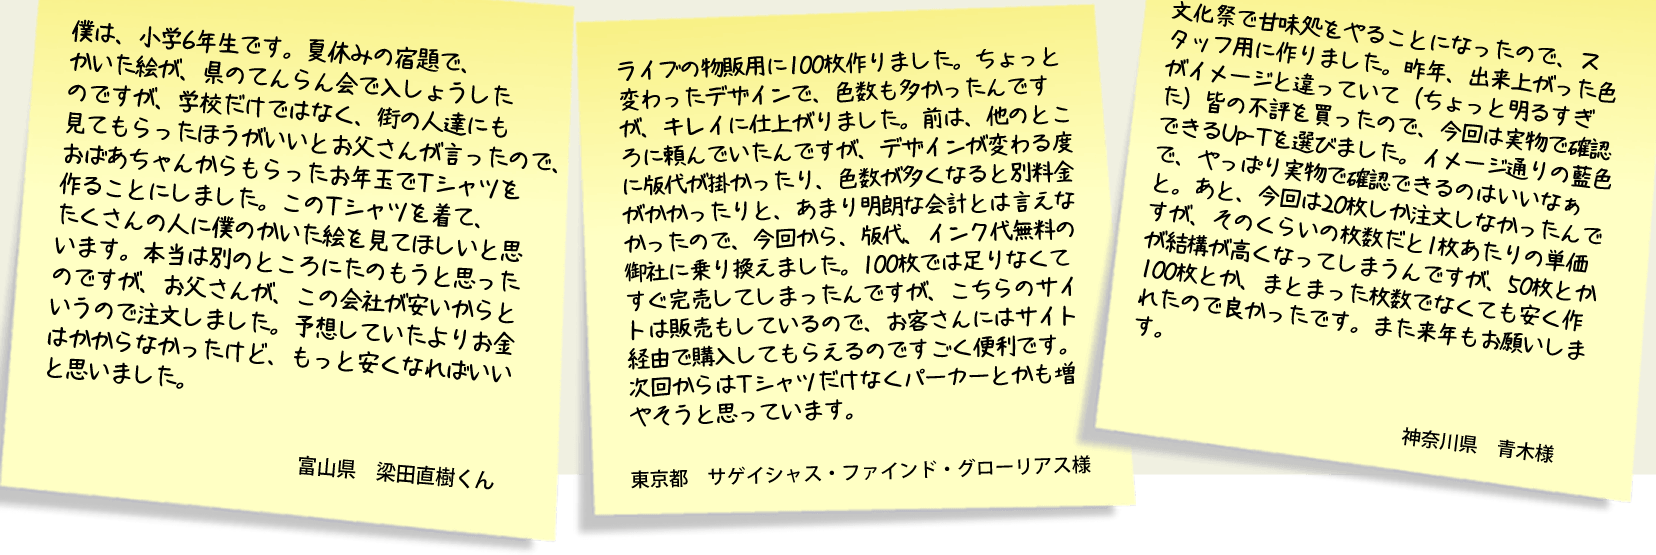 僕は、小学6年生です。夏休みの宿題で、
かいた絵が、県のてんらん会で入しょうした
のですが、学校だけではなく、街の人達にも
見てもらったほうがいいとお父さんが言ったので、
おばあちゃんからもらったお年玉でTシャツを
作ることにしました。このTシャツを着て、
たくさんの人に僕のかいた絵を見てほしいと思
います。本当は別のところにたのもうと思った
のですが、お父さんが、この会社が安いからと
いうので注文しました。予想していたよりお金
はかからなかったけど、もっと安くなればいい
と思いました。
富山県　梁田直樹くん
ライブの物販用に100枚作りました。ちょっと
変わったデザインで、色数も多かったんです
が、キレイに仕上がりました。前は、他のとこ
ろに頼んでいたんですが、デザインが変わる度
に版代が掛かったり、色数が多くなると別料金
がかかったりと、あまり明朗な会計とは言えな
かったので、今回から、版代、インク代無料の
御社に乗り換えました。100枚では足りなくて
すぐ完売してしまったんですが、こちらのサイ
トは販売もしているので、お客さんにはサイト
経由で購入してもらえるのですごく便利です。
次回からはTシャツだけなくパーカーとかも増
やそうと思っています。
東京都　サゲイシャス・ファインド・グローリアス様
文化祭で甘味処をやることになったので、ス
タッフ用に作りました。昨年、出来上がった色
がイメージと違っていて（ちょっと明るすぎ
た）皆の不評を買ったので、今回は実物で確認
できるUp-Tを選びました。イメージ通りの藍色
で、やっぱり実物で確認できるのはいいなぁ
と。あと、今回は20枚しか注文しなかったんで
すが、そのくらいの枚数だと1枚あたりの単価
が結構が高くなってしまうんですが、50枚とか
100枚とか、まとまった枚数でなくても安く作
れたので良かったです。また来年もお願いしま
す。
神奈川県　青木様